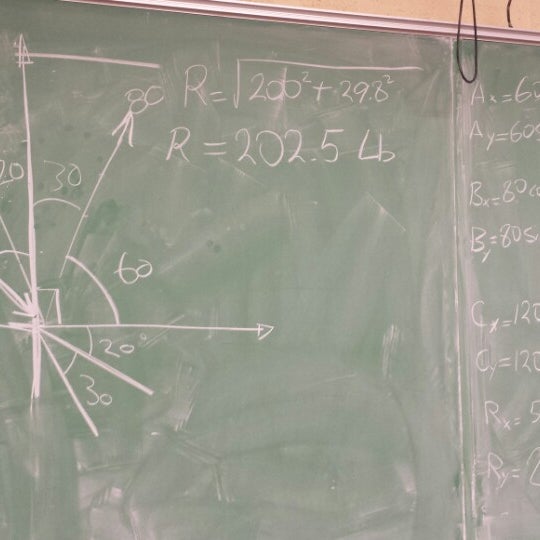 80
R=√200²+29.8²
R=202.5 Lb
20
30
60
20°
30
Ax=60
Ay=60s
Bx=80co
By=80s
Cx=120
Cy=120
Rx=5
Ry=